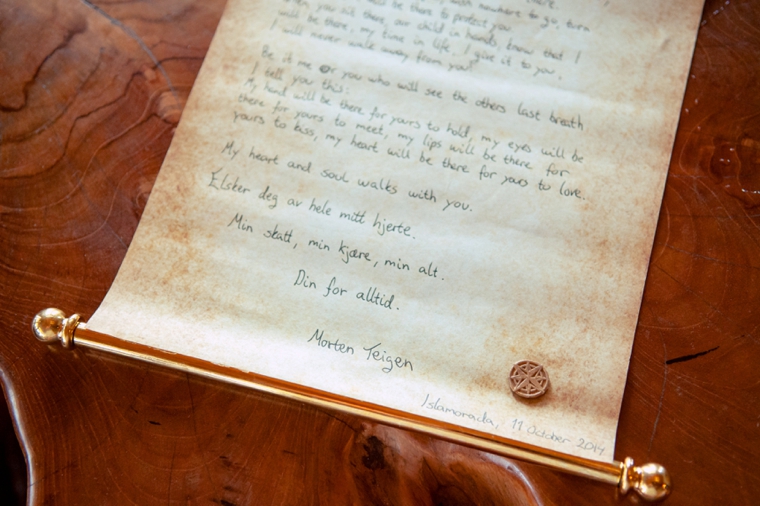 with nowhere to go, turn
will be there to protect you.
you sit there, our child in hands, know that I
will be there, my time in life, I give it to you,
I will never walk away from you!
Be it me or you who will see the others last breath
I tell you this:
My hand will be there for yours to hold, my eyes will be
there for yours to meet, my lips will be there for
yours to kiss, my heart will be there for yours to love.
My heart and soul walks with you.
Elsker deg av hele mitt hjerte.
Min skatt, min kjære, min alt.
Din for alltid.
Morten Teigen
Islamorada, 11 October 2014